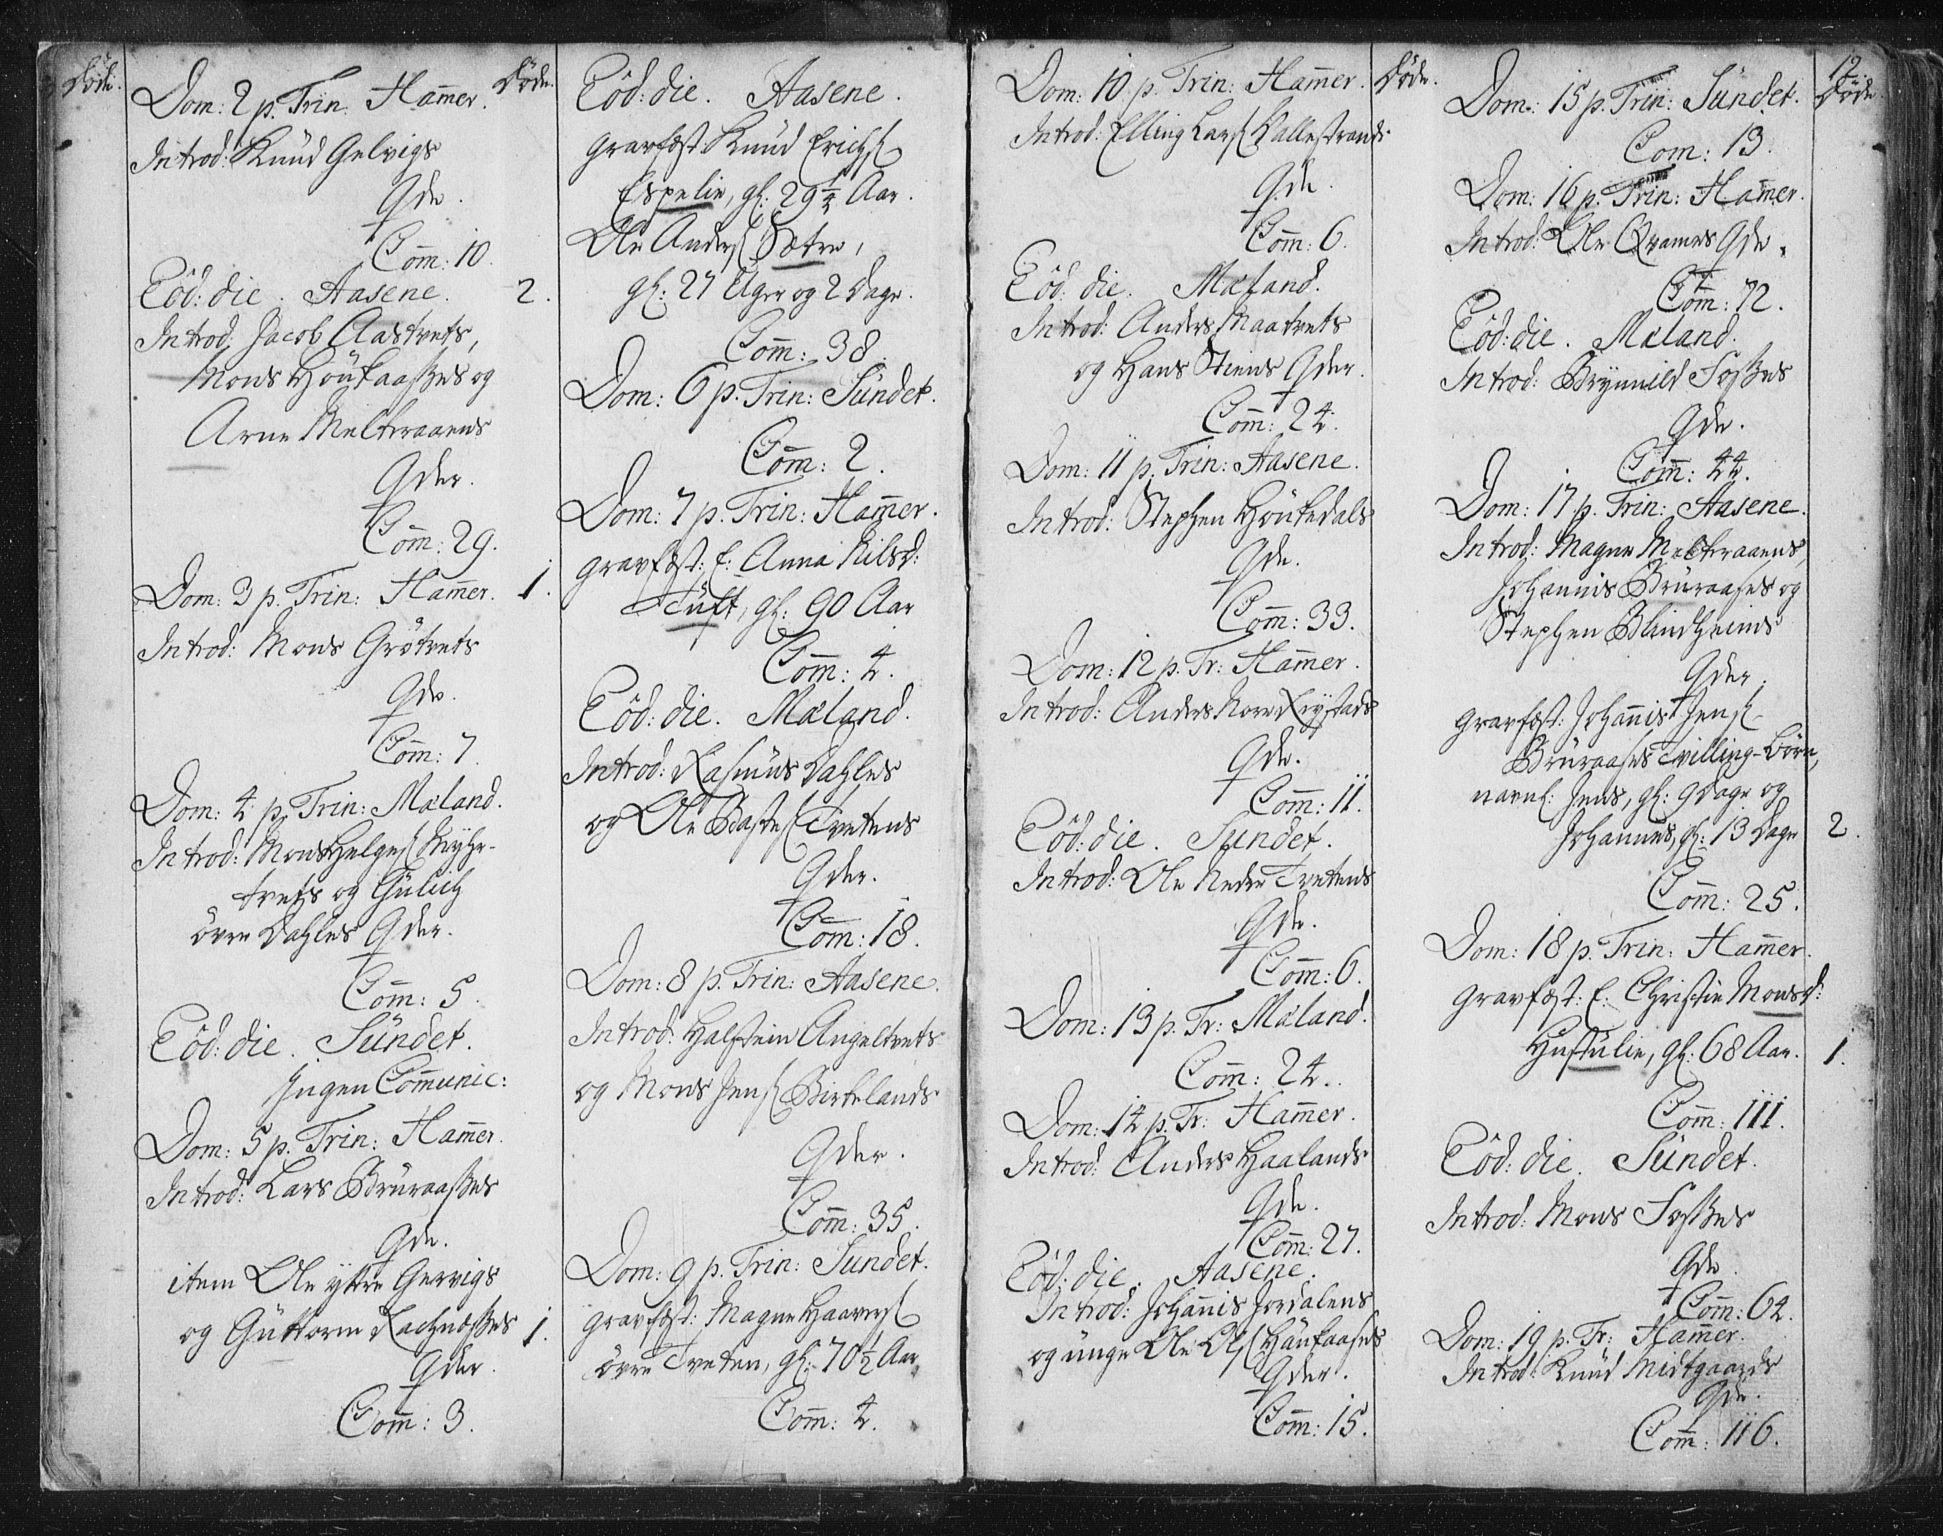 Døde.
Dom: 2 p. Trin: Ham̄er.
Introd: Knud Gelvigs
Qde.
Com̄: 10.
Eôd: die. Aasene.
Introd: Jacob Aastvets,
Mons Höukaasßes og
Arne Meltveraaens
Qder.
Com̄: 29.
Dom: 3 p. Trin: Ham̄er.
Introd: Mons Grötvets
Qde.
Com̄: 7.
Dom: 4 p. Trin: Mæland.
Introd: Mons Helges. Myhr-
tvets og Gulich
övre Dahles Qder.
Com̄: 5.
Eôd: die. Sündet.
Ingen Com̄unic:
Dom: 5 p. Trin: Ham̄er.
Introd: Lars Brüraaßes
Qde.
item Ole yttre Gervigs
og Güttorm Kachnæßes
Qder.
Com̄: 3.
Døde.
2.
1.
1.
Eôd: die. Aasene.
gravfæst: Knud Erichs.
Espelie, gl: 29 1/4 Aar.
Ole Anders. Sætre,
gl: 27 Uger og 2 Dage.
Com̄: 38.
Dom: 6 p. Trin: Sündet.
Com̄: 2.
Dom: 7 p. Trin: Ham̄er.
gravfæst: E: Anna Nilsd:
Tuft, gl: 90 Aar
Com̄: 4.
Eôd: die. Mæland.
Introd: Rasmus Dahles
og Ole Bastes. Tvetens
Qder.
Com̄: 18.
Dom: 8 p. Trin: Aasene.
Introd: Halstein Angeltvets
og Mons Jens. Birkelands
Qder.
Com̄: 35.
Dom: 9 p. Trin: Sundet.
gravfæst: Magne Haavers.
övre Tveten, gl: 70 1/2 Aar
Com̄: 4.
Dom: 10. p. Trin: Ham̄er.
Introd: Elling Lars. Vallestrands
Qde.
Com̄: 6.
Eôd: die. Mæland.
Introd: Anders Maatvets
og Hans Steins Qder.
Com̄: 24.
Dom: 11 p. Trin: Aasene.
Introd: Stephen Höukedals
Qde.
Com̄: 33.
Dom: 12 p. Tr: Ham̄er.
Introd: Anders Nore Rystads
Qde.
Com̄: 11.
Eôd: die. Sundet.
Introd: Ole Nedre Tvetens
Qde.
Com̄: 6.
Dom: 13 p. Tr: Mæland.
Com̄: 24.
Dom: 14 p. Tr: Ham̄er.
Introd: Anders Haalands
Qde.
Com̄: 27.
Eôd: die. Aasene.
Introd: Johannis Jordalens
og unge Ole Ols. Häukaases
Qder.
Com̄: 15.
Døde.
Dom: 15 p. Trin: Sündet.
Com: 13.
Dom: 16 p. Trin: Ham̄er.
Introd: Ole Qvames Qde.
Com̄: 72.
Eôd: die. Mæland.
Introd: Brynnild Foßes
Qde.
Com̄: 44.
Dom: 17 p. Trin: Aasene.
Introd: Magne Meltveraaens,
Johannis Brüraases og
Stephen Blindheims
Qder.
gravfæst: Johannis Jens.
Brüraases Tvilling-Börn,
navnl: Jens, gl: 9 Dage og
Johannes, gl: 13 Dage
Com̄: 25.
Dom: 18 p. Trin: Ham̄er.
gravfæst: E: Christie Monsd:
Husdulie, gl: 68 Aar.
Com̄: 111.
Eôd: die. Sündet.
Introd: Mons Foßes
Qde.
Com̄: 64.
Dom: 19 p. Tr: Ham̄er.
Introd: Knud Midtgaards
Qde.
Com̄: 116.
12.
Døde.
2.
1.